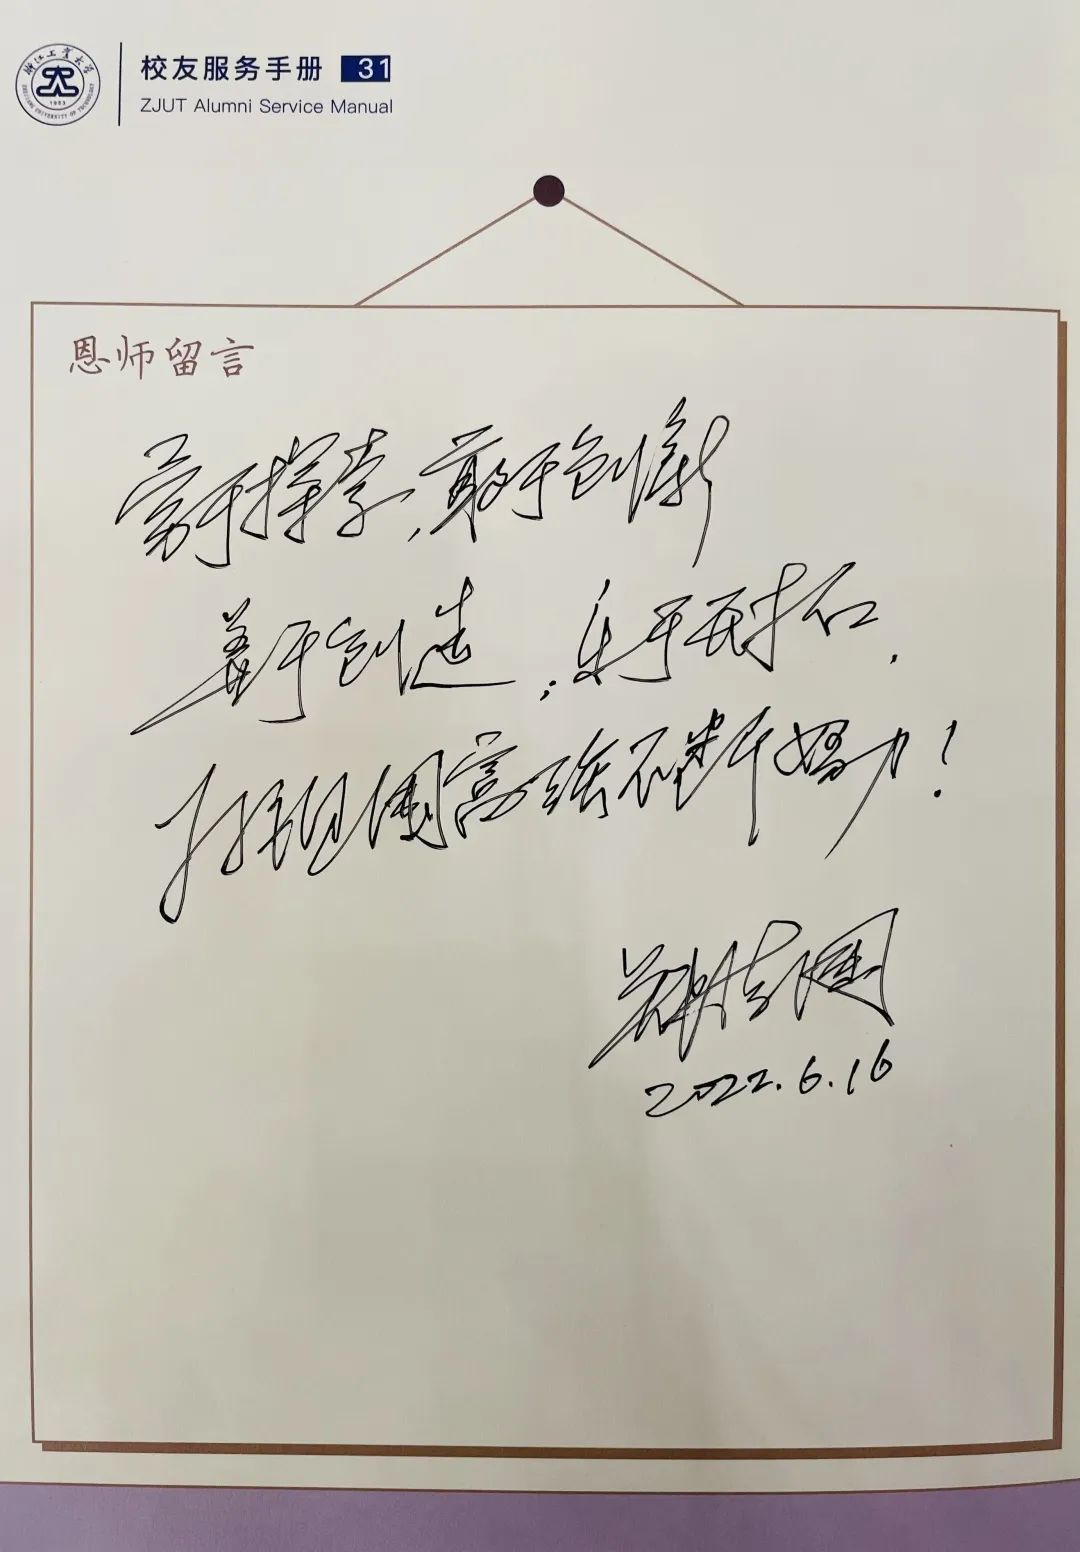 浙江工業大学
1953
ZHEJIANG UNIVERSITY OF TECHNOLOGY
校友服务手册 31
ZJUT Alumni Service Manual
恩师留言
勇于探索，敢于创新
善于创造；乐于开拓，
为祖国富强不断努力！
郑裕国
2022.6.16